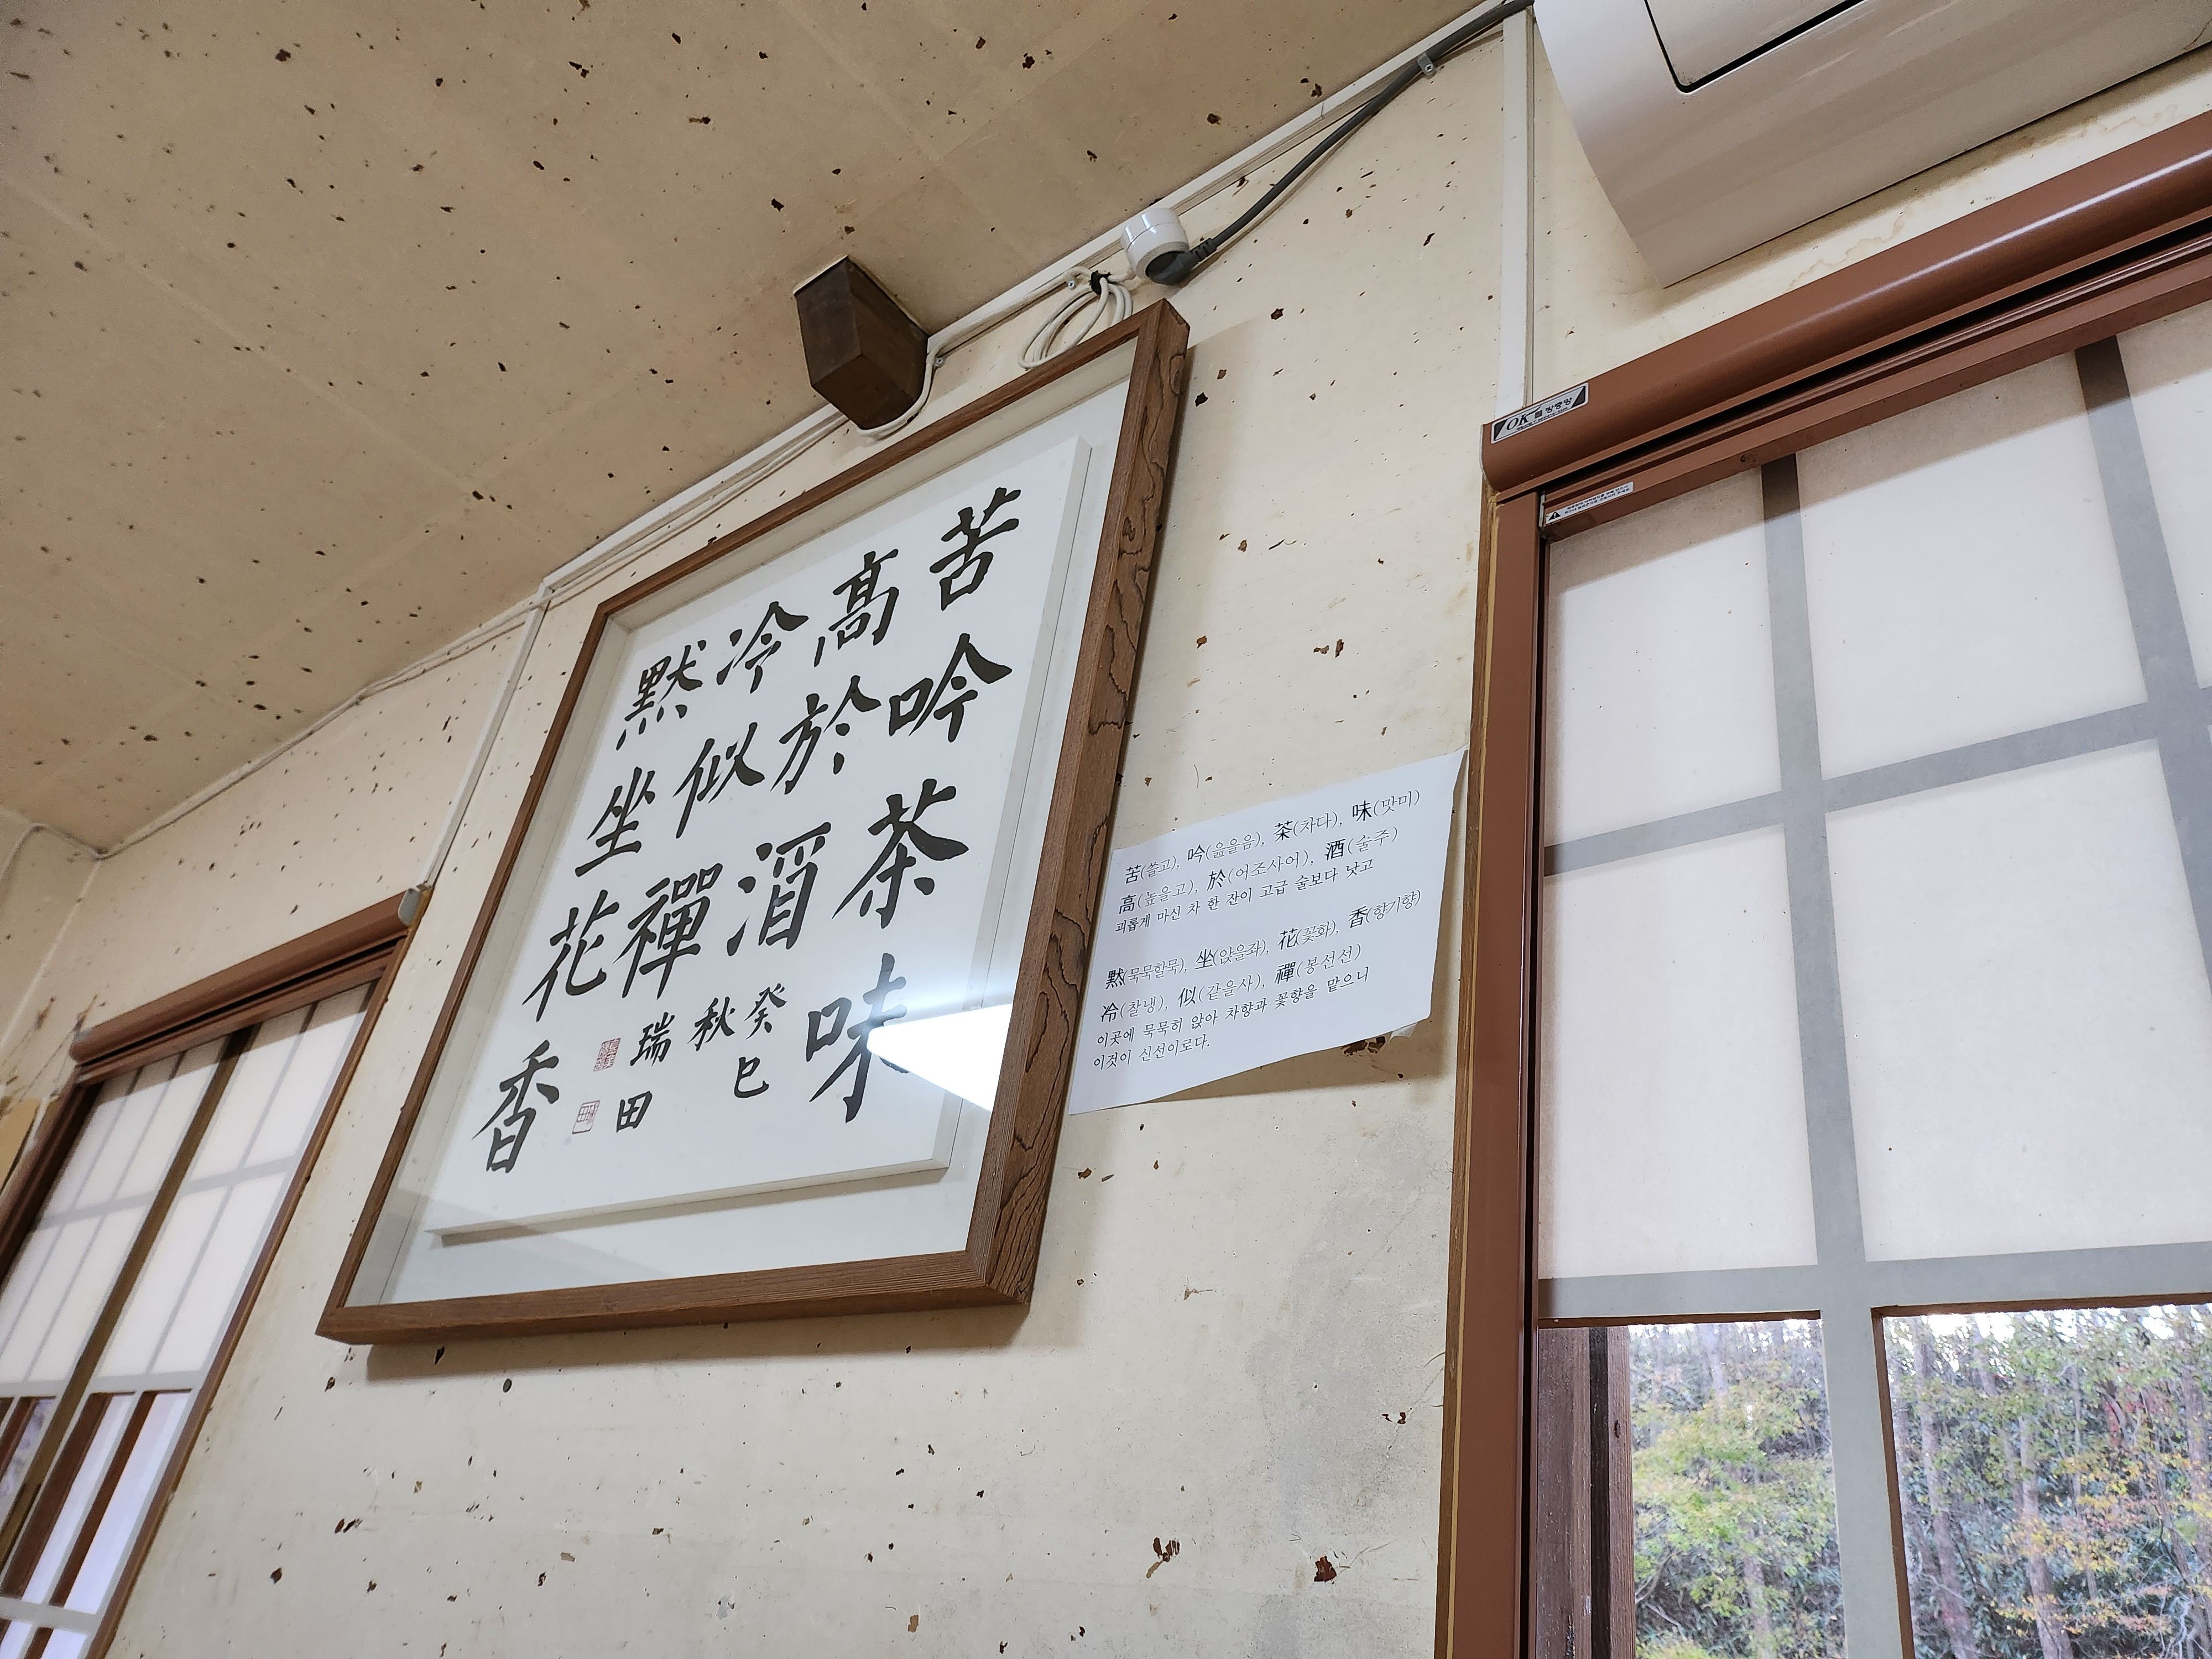 苦吟茶味
高於酒
冷似禪
黙坐花香
癸巳
秋
瑞田
苦(쓸고), 吟(읊을음), 茶(차다), 味(맛미)
高(높을고), 於(어조사어), 酒(술주)
괴롭게 마신 차 한 잔이 고급 술보다 낫고
黙(묵묵할묵), 坐(앉을좌), 花(꽃화), 香(향기향)
冷(찰냉), 似(같을사), 禪(봉선선)
이곳에 묵묵히 앉아 차향과 꽃향을 맡으니
이것이 신선이로다.
OK